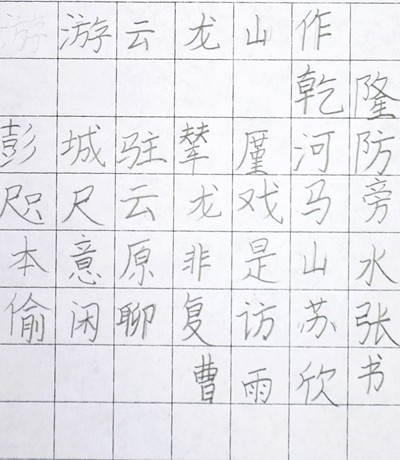 游游云龙山作
乾隆
彭城驻辇厪河防
咫尺云龙戏马旁
本意原非是山水
偷闲聊复访苏张
曹雨欣书